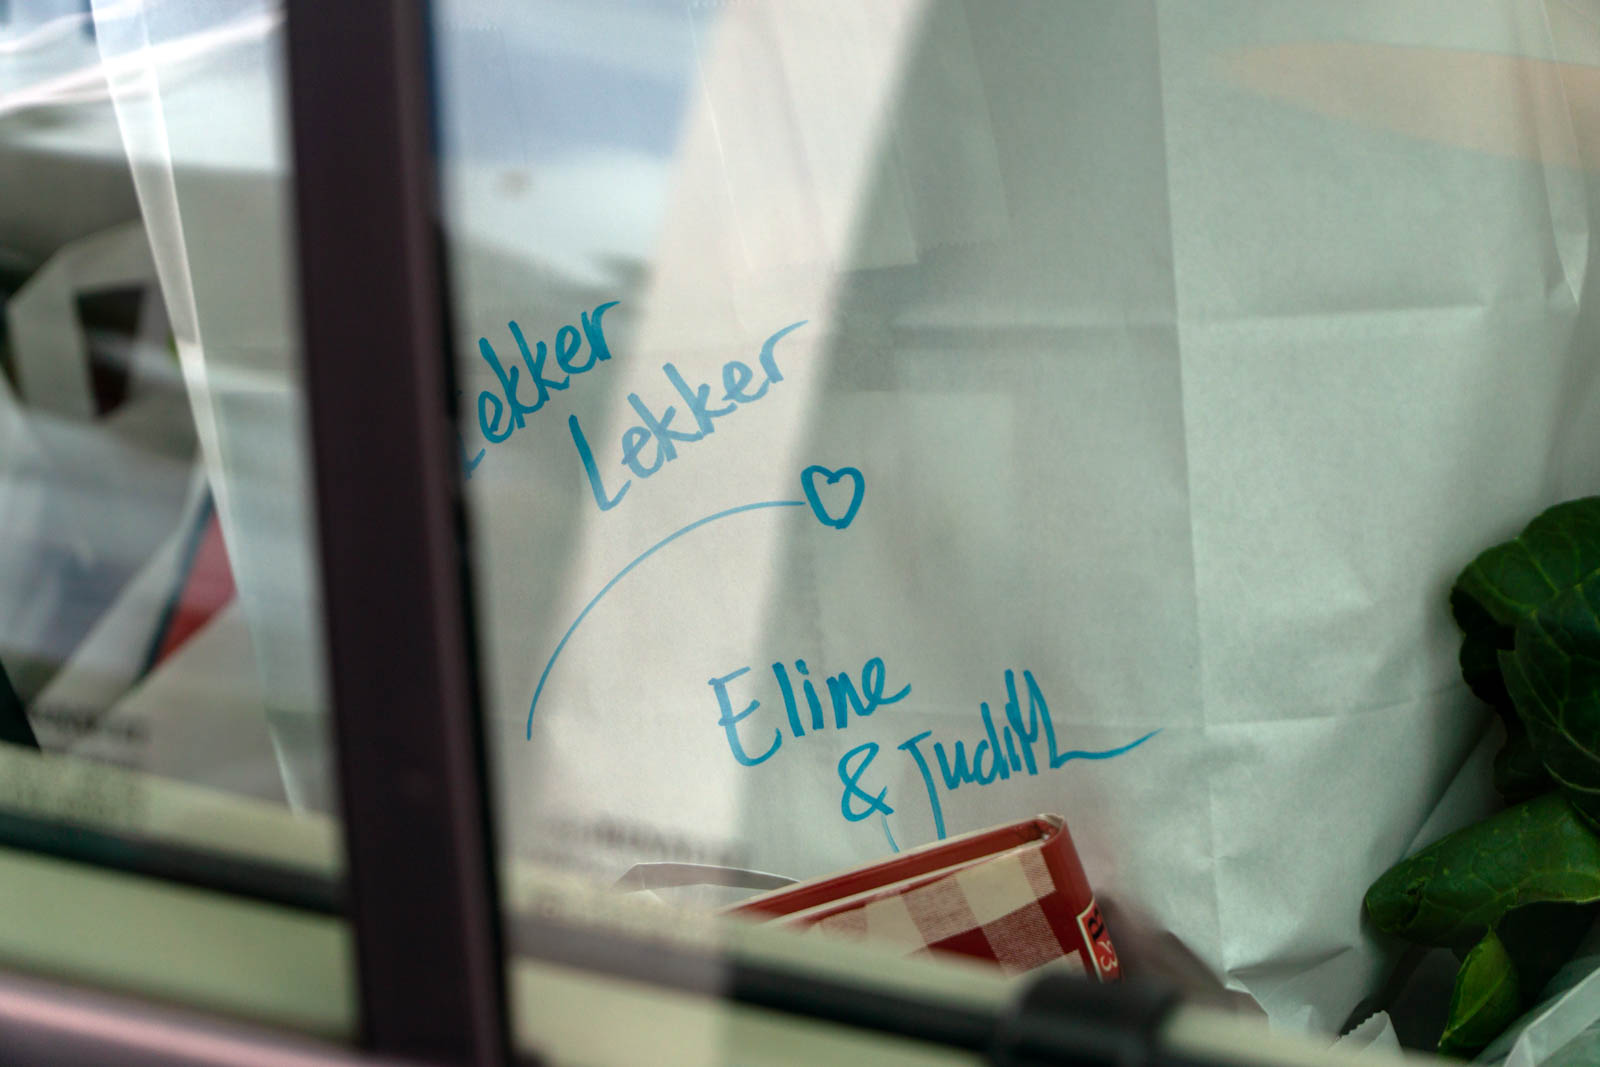 Lekker
Lekker
Eline
& Judith